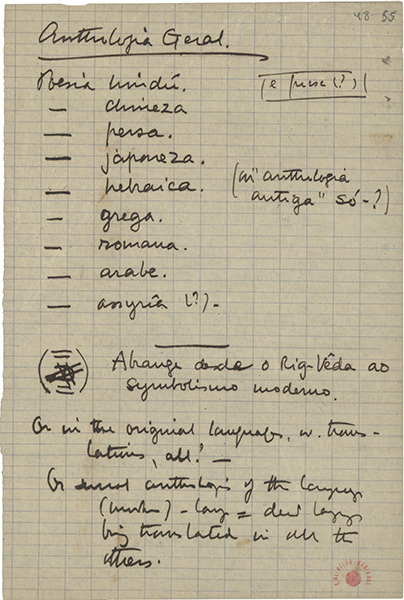 48-55
Anthologia Geral.
Poesia hindú.
(e prosa (?))
— chineza
— persa.
— japoneza.
— hebraica.
(n'"anthologia
antiga" só-?)
— grega.
— romana.
— arabe.
— assyria (?) -
Abrange desde o Rig-Vêda ao
symbolismo moderno.
Or in the original languages, w. trans-
lations, all? —
Or anthologies of the languages
being translated in all the
others.